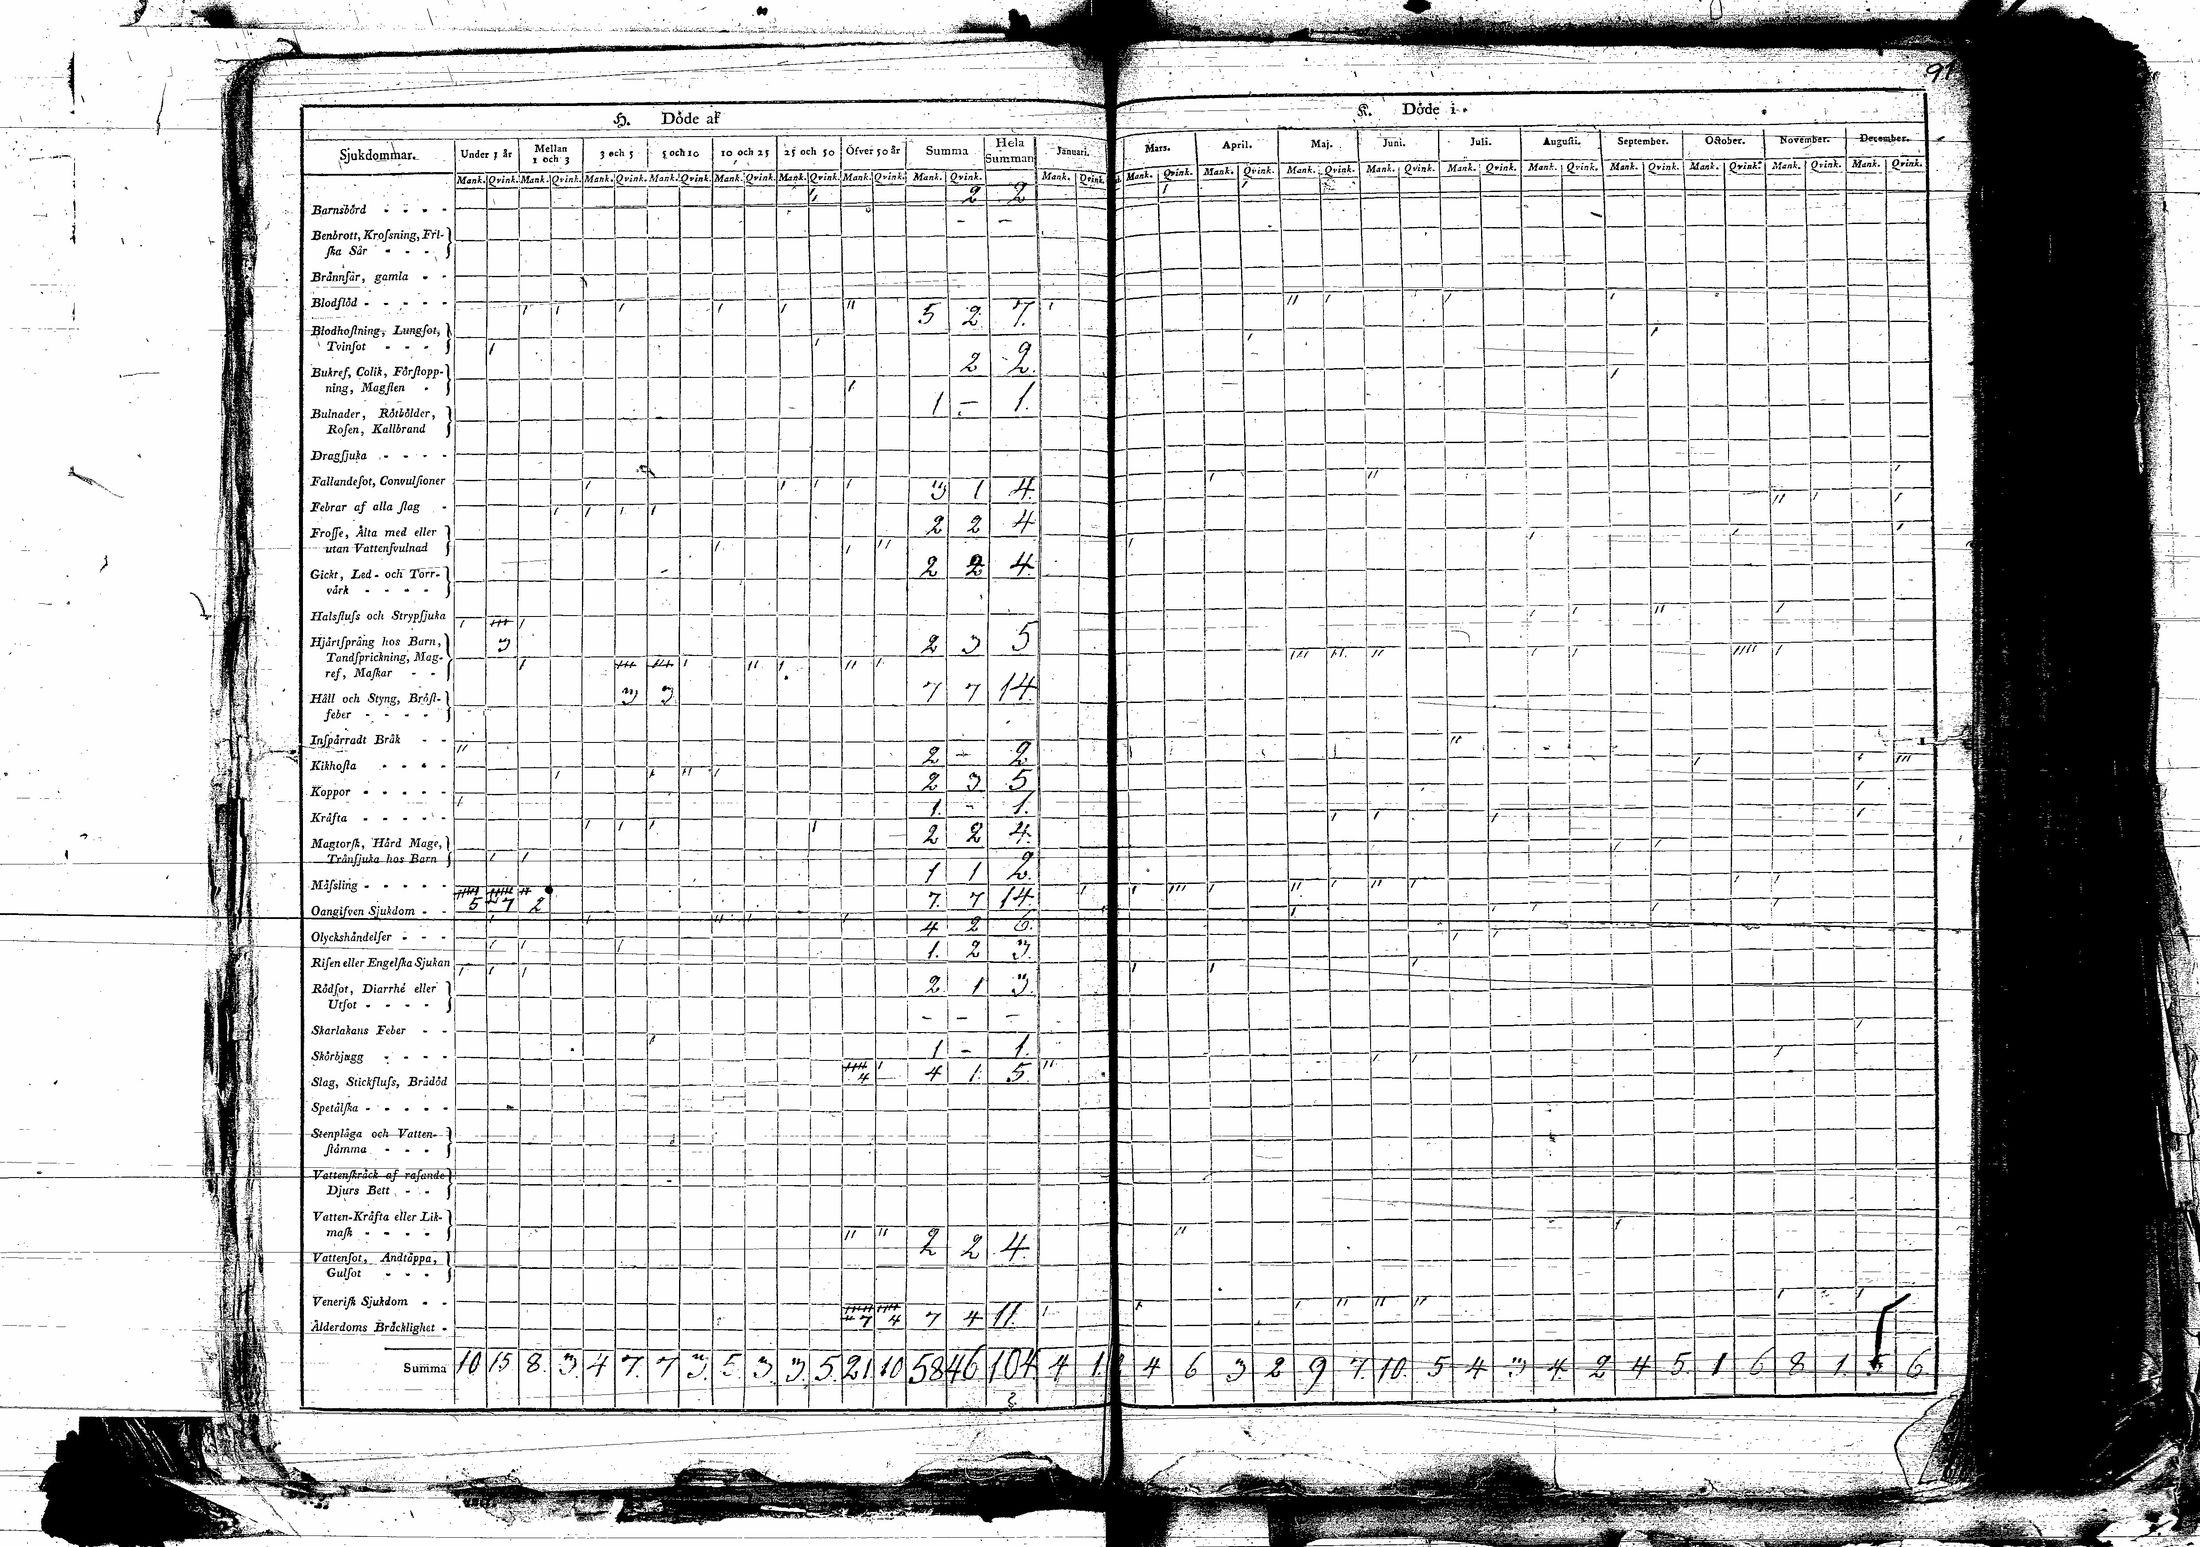 91
H. Döde af
K. Döde i
Sjukdommar. Under 1 år Mellan 1 och 3 3 och 5 5 och 10 10 och 25 25 och 50 Öfver 50 år Summa Hela Summan Januari. Mars. April. Maj. Juni. Juli. Augusti. September. October. November. December.
Mank. Qvink. Mank. Qvink. Mank. Qvink. Mank. Qvink. Mank. Qvink. Mank. Qvink. Mank. Qvink. Mank. Qvink. Mank. Qvink. Mank. Qvink. Mank. Qvink. Mank. Qvink. Mank. Qvink. Mank. Qvink. Mank. Qvink. Mank. Qvink. Mank. Qvink. Mank. Qvink. Mank. Qvink.
2 2
Barnsbörd - - - -
— —
Benbrott, Krosning, Fri-
ska Sår - - -
Brännsår, gamla - -
Blodflöd - - - - -
5 2 7.
Blodhostning, Lungsot,
Tvinsot - - -
2 2.
Bukref, Colik, Förstopp-
ning, Magsten -
1 — 1.
Bulnader, Rötbölder,
Rosen, Kallbrand
Dragsjuka - - - -
Fallandesot, Convulsioner
3 1 4.
Febrar af alla slag -
2 2 4
Frosse, Älta med eller
utan Vattensvulnad
2 2 4.
Gickt, Led- och Torr-
värk - - - -
Halsfluss och Strypsjuka
3 2 3 5
Hjärtsprång hos Barn,
Tandsprickning, Mag-
ref, Maskar - -
3 3 7 7 14.
Håll och Styng, Bröst-
feber - - - -
Inspärradt Bråk - -
2 — 2
Kikhosta - - - -
2 3 5
Koppor - - - - -
1. - 1.
Kräfta - - - - -
2 2 4.
Magtorsk, Hård Mage,
Trånsjuka hos Barn
1 1 2.
Mässling - - - - -
5 7 2 7. 7 14.
Oangifven Sjukdom - -
4 2 6.
Olyckshändelser - - -
1. 2 3.
Risen eller Engelska Sjukan
2 1 3.
Rödsot, Diarrhé eller
Utsot - - - -
— — —
Skarlakans Feber - -
1 - 1.
Skörbjugg - - - -
4 4 1. 5
Slag, Stickfluss, Brådöd
Spetälska - - - - -
Stenplåga och Vatten-
stämma - - -
Vattenskräck af rasande
Djurs Bett - -
Vatten-Kräfta eller Lik-
mask - - - -
2 2 4.
Vattensot, Andtäppa,
Gulsot - - -
Venerisk Sjukdom - -
7 4 7 4 11.
Ålderdoms Bräcklighet -
Summa 10 15 8. 3. 4 7. 7 3. 5. 3. 3. 5. 21. 10 58 46 104. 4 1. 4 6 3 2 9 7. 10. 5 4 3 4. 2 4 5. 1 6 8 1. 5 6